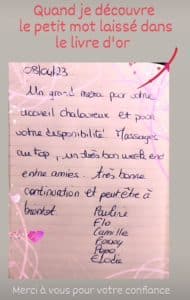 Quand je découvre
le petit mot laissé dans
le livre d'or
08/04/23
Un grand merci pour votre
accueil chaleureux et pour
votre disponibilité. Massages
au top, un très bon week end
entre amies. très bonne
continuation et peut être à
bientôt
Pauline
Flo
Camille
Fanny
Elodie
Merci à vous pour votre confiance